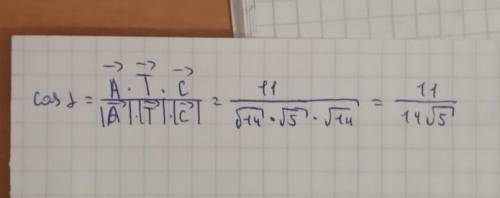 cos γ = (A⃗ · T⃗ · C⃗) / (|A⃗| · |T⃗| · |C⃗|) = 11 / (√14 · √5 · √14) = 11 / (14√5)